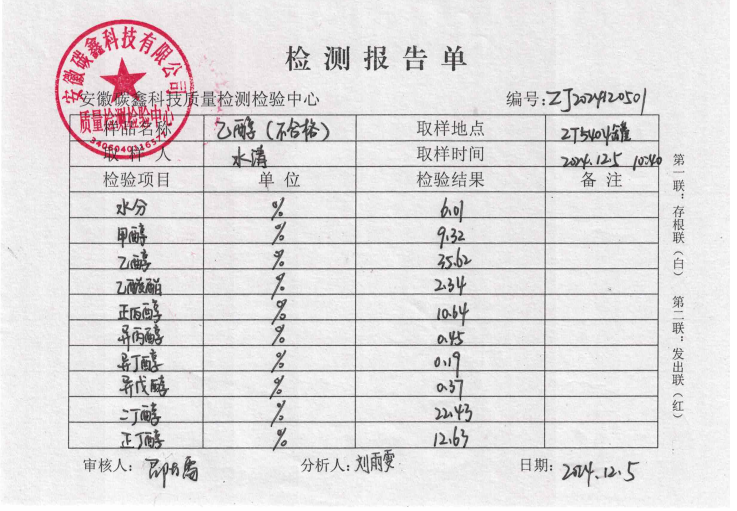 检测报告单
安徽碳鑫科技有限公司
质量检测检验中心
安徽碳鑫科技质量检测检验中心 编号:ZJ2024120501
样品名称 乙醇(不合格) 取样地点 ZJ5404罐
取样人 水清 取样时间 2024.12.5 10:40
检验项目 单位 检验结果 备注
水分 % 6.01
甲醇 % 9.32
乙醇 % 35.62
乙酸酯 % 2.34
正丙醇 % 10.64
异丙醇 % 0.45
异丁醇 % 0.19
异戊醇 % 0.37
二丁醇 % 22.43
正丁醇 % 12.63
审核人: 分析人:刘雨雯 日期:2024.12.5
第一联:存根联(白) 第二联:发出联(红)